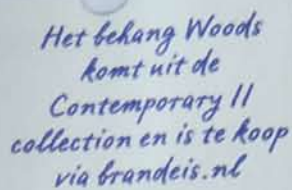 Het behang Woods
komt uit de
Contemporary II
collection en is te koop
via brandeis.nl